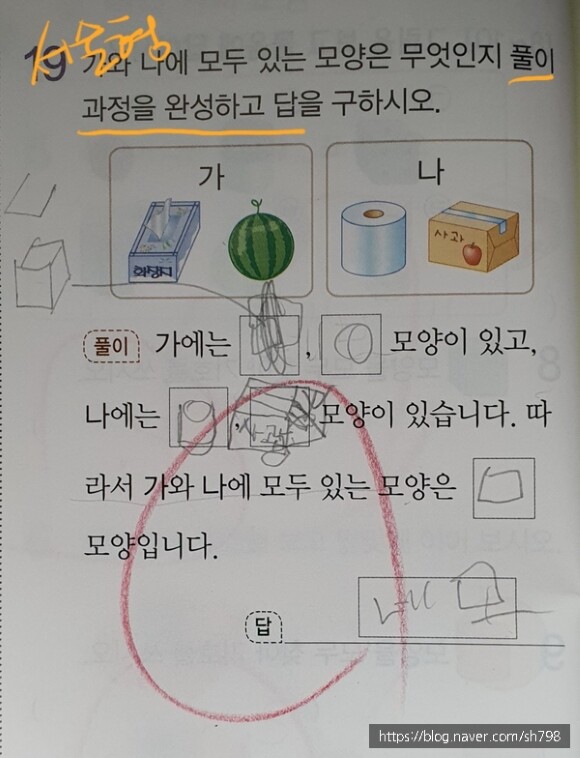 서술형
19 가와 나에 모두 있는 모양은 무엇인지 풀이
과정을 완성하고 답을 구하시오.
가
나
화장지
사과
풀이 가에는 , 모양이 있고,
나에는 , 모양이 있습니다. 따
사과
라서 가와 나에 모두 있는 모양은
모양입니다.
답 네모
8
9
https://blog.naver.com/sh798